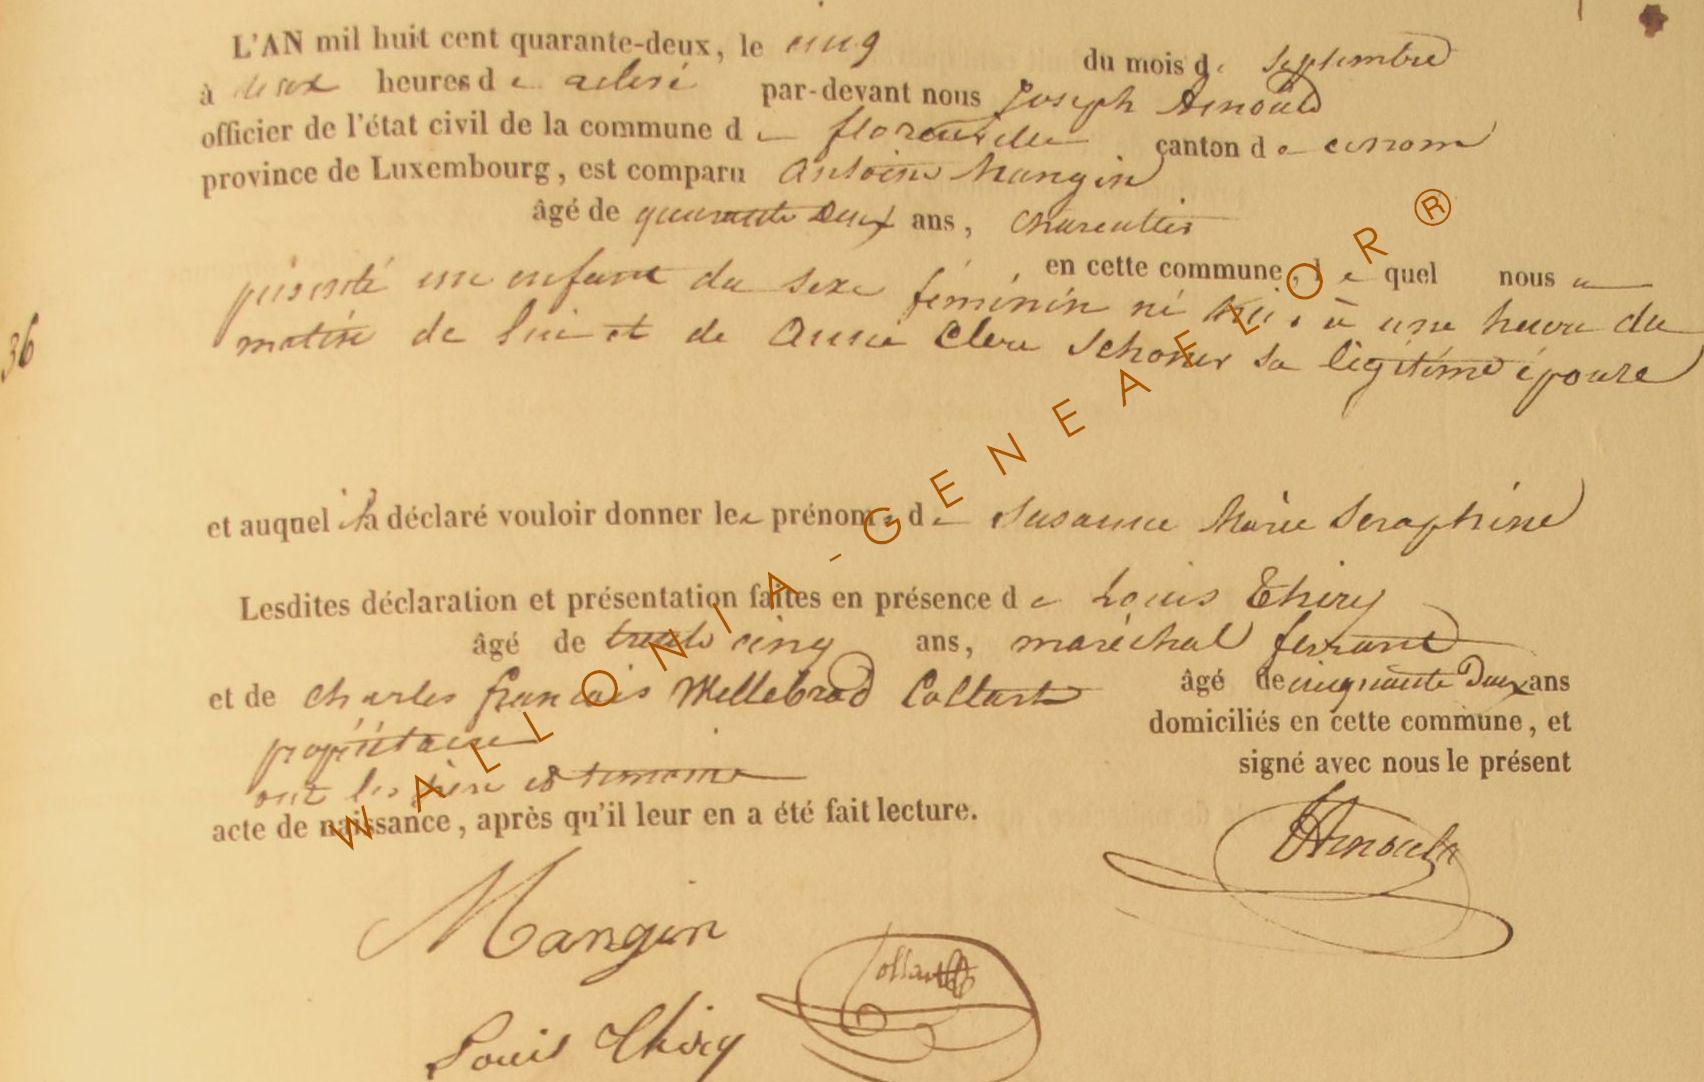 L'AN mil huit cent quarante-deux, le cinq du mois de Septembre
à deux heures de par-devant nous Joseph Arnould
officier de l'état civil de la commune de florenville canton de
province de Luxembourg, est comparu Antoine Mangin
âgé de quarante deux ans, Charcutier
en cette commune, le quel nous a
présenté un enfant du sexe féminin né à une heure du
matin de lui et de Anne Clere sa légitime épouse
36
et auquel il a déclaré vouloir donner les prénoms de Susanne Marie Seraphine
Lesdites déclaration et présentation faites en présence de Louis Thiry
âgé de trente cinq ans, maréchal ferrant
et de Charles françois Willebrod Collart âgé de cinquante Deux ans
propriétaire domiciliés en cette commune, et
ont les père et temoins signé avec nous le présent
acte de naissance, après qu'il leur en a été fait lecture.
Arnould
Mangin
Collart
Louis Thiry
WALLONIA-GENEAFLOR®